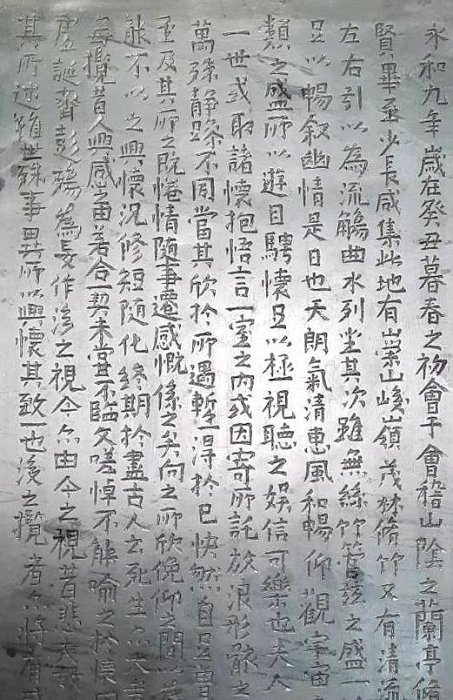 永和九年歲在癸丑暮春之初會于會稽山陰之蘭亭脩
賢畢至少長咸集此地有崇山峻嶺茂林脩竹又有清流
左右引以為流觴曲水列坐其次雖無絲竹管弦之盛一
足以暢叙幽情是日也天朗氣清惠風和暢仰觀宇宙
類之盛所以遊目騁懷足以極視聽之娛信可樂也夫人
一世或取諸懷抱悟言一室之內或因寄所託放浪形骸之
萬殊静躁不同當其欣於所遇暫得於己快然自足曾
至及其所之既惓情隨事遷感慨係之矣向之所欣俛仰之間以
能不以之興懷況修短隨化終期於盡古人云死生亦大
每攬昔人興感之由若合一契未嘗不臨文嗟悼不能喻之於懷
虛誕齊彭殤為妄作後之視今亦由今之視昔悲夫
其所述雖世殊事異所以興懷其致一也後之攬者亦將有